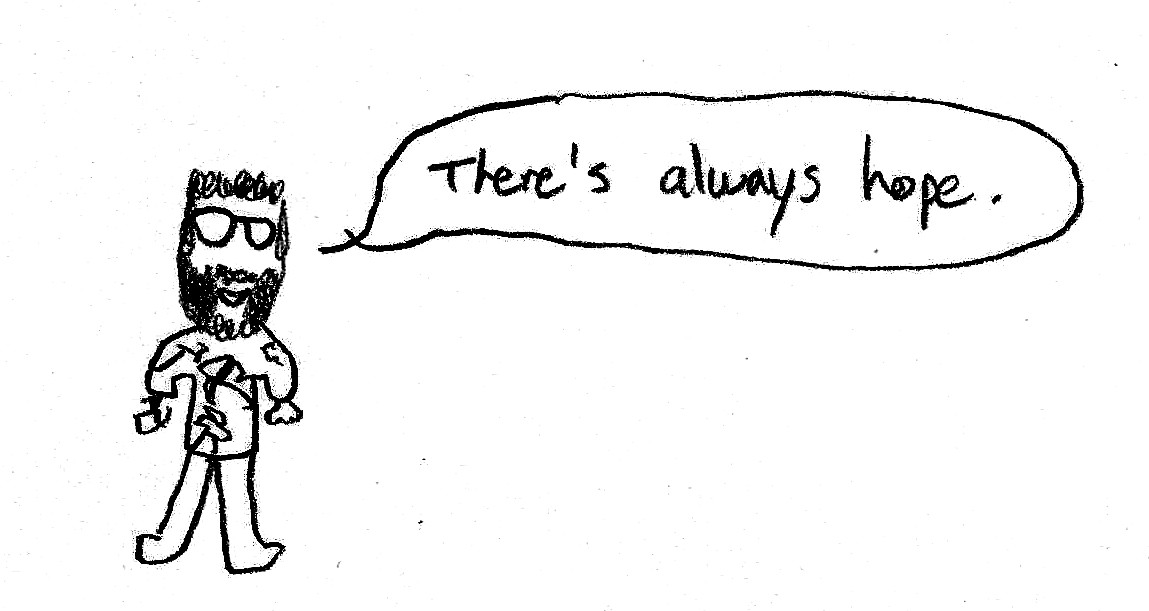 There's always hope.